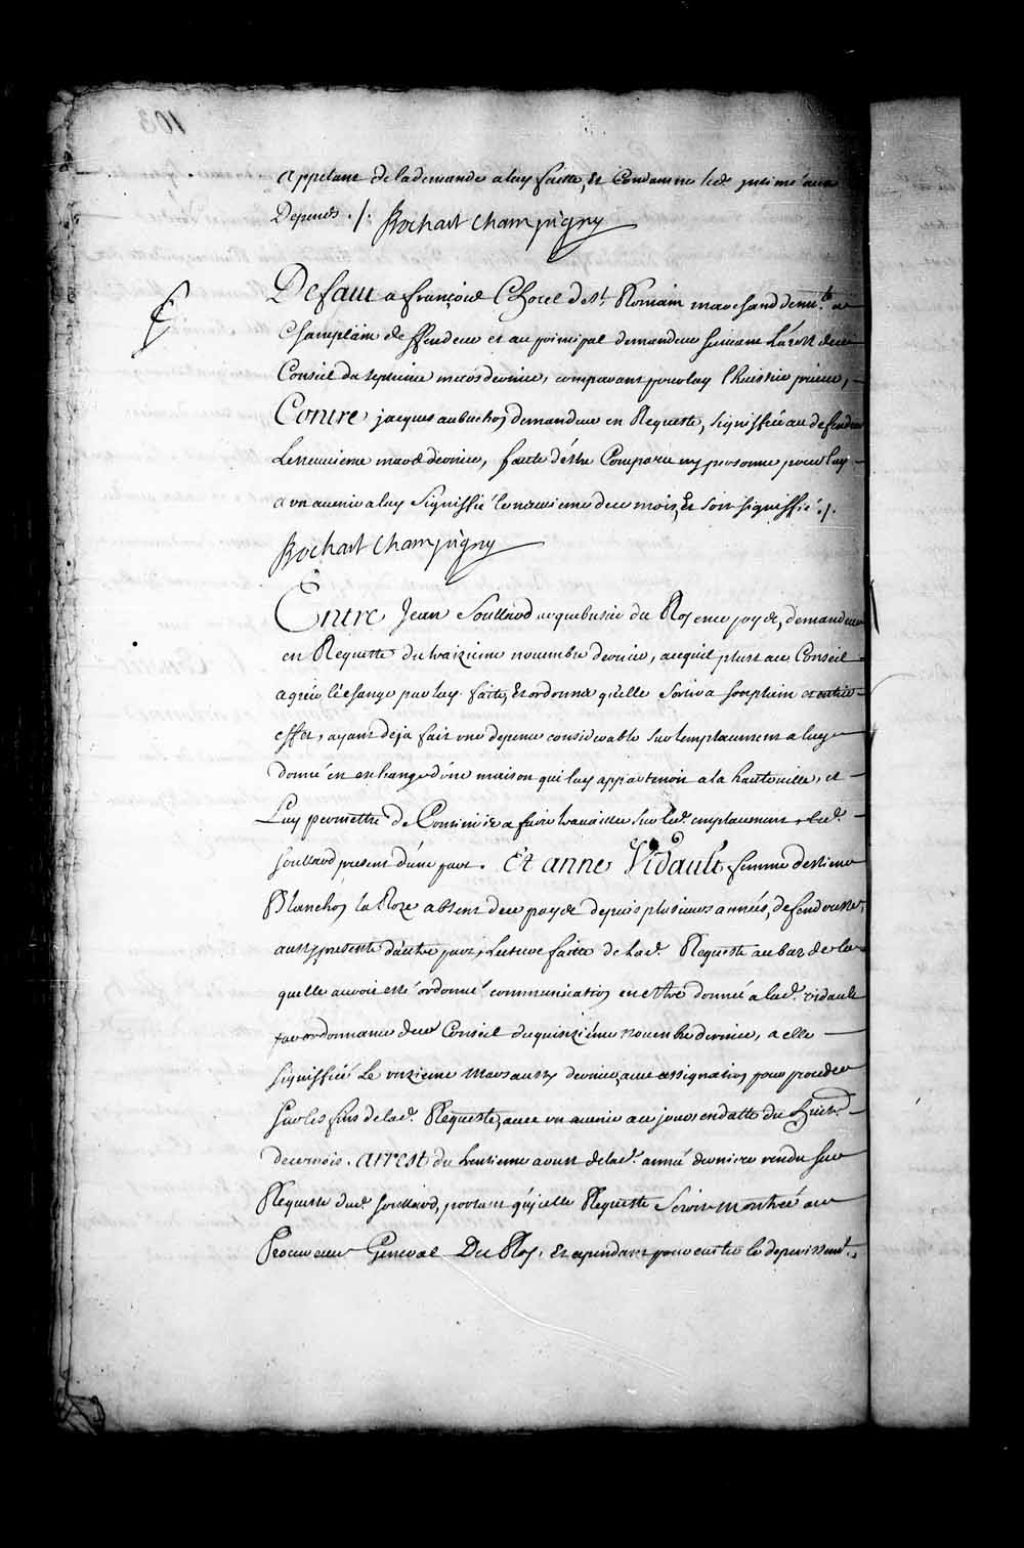 appelant de la demande a luy faitte, Et Condamne led. intimé aux
Depends ./. Bochart Champigny
Defaut a françois Chorel de St. Romain marchand demt. a
Champlain deffendeur et au principal demandeur suivant L'arest de ce
Conseil du septieme mars dernier, comparant pour luy l'huissier prieur,
Contre jacques aubuchoñ demandeur en Requeste, signiffiée au defendeur
Le neuvieme mars dernier, faute d'estre Comparu ny personne pour luy
a un avenir a luy signiffié le neuvieme de ce mois, Et soit signiffié ./.
Bochart Champigny
Entre Jean Soullard arquebusier du Roy en ce pays, demandeur
en Requeste du traizieme novembre dernier, a ce quil plust au Conseil
agréer léchange par luy faitte, Et ordonner qu'elle sortira son plein et entier
effet, ayant deja fait une depence considerable sur lemplacement a luy
donné en eschange d'une maison qui luy appartenoit a la haute ville, et
Luy permettre de Continüer a faire travailler sur led. emplacement, led.
Soullard present d'une part. Et anne Vidault femme destienne
Blanchoñ la Roze absent de ce pays depuis plusieurs années, defenderesse,
aussy presente d'autre part, Lecture faitte de lad. Requeste au bas de la
quelle auroit esté ordonné communicatioñ en estre donnée a lad. vidault
par ordonnance de ce Conseil du quinziéme novembre dernier, a elle
signiffiée Le unzieme Mars aussy dernier, avec assignatioñ pour proceder
sur les fins de lad. Requeste, avec un avenir a ce jour en datte du huict
de ce mois. Arrest du trentieme avril de lad. année derniere rendu sur
Requeste dud. Soullard, portant qu'icelle Requeste seroit Montrée au
Procureur General Du Roy, Et cependant pour eviter le deperissemt.